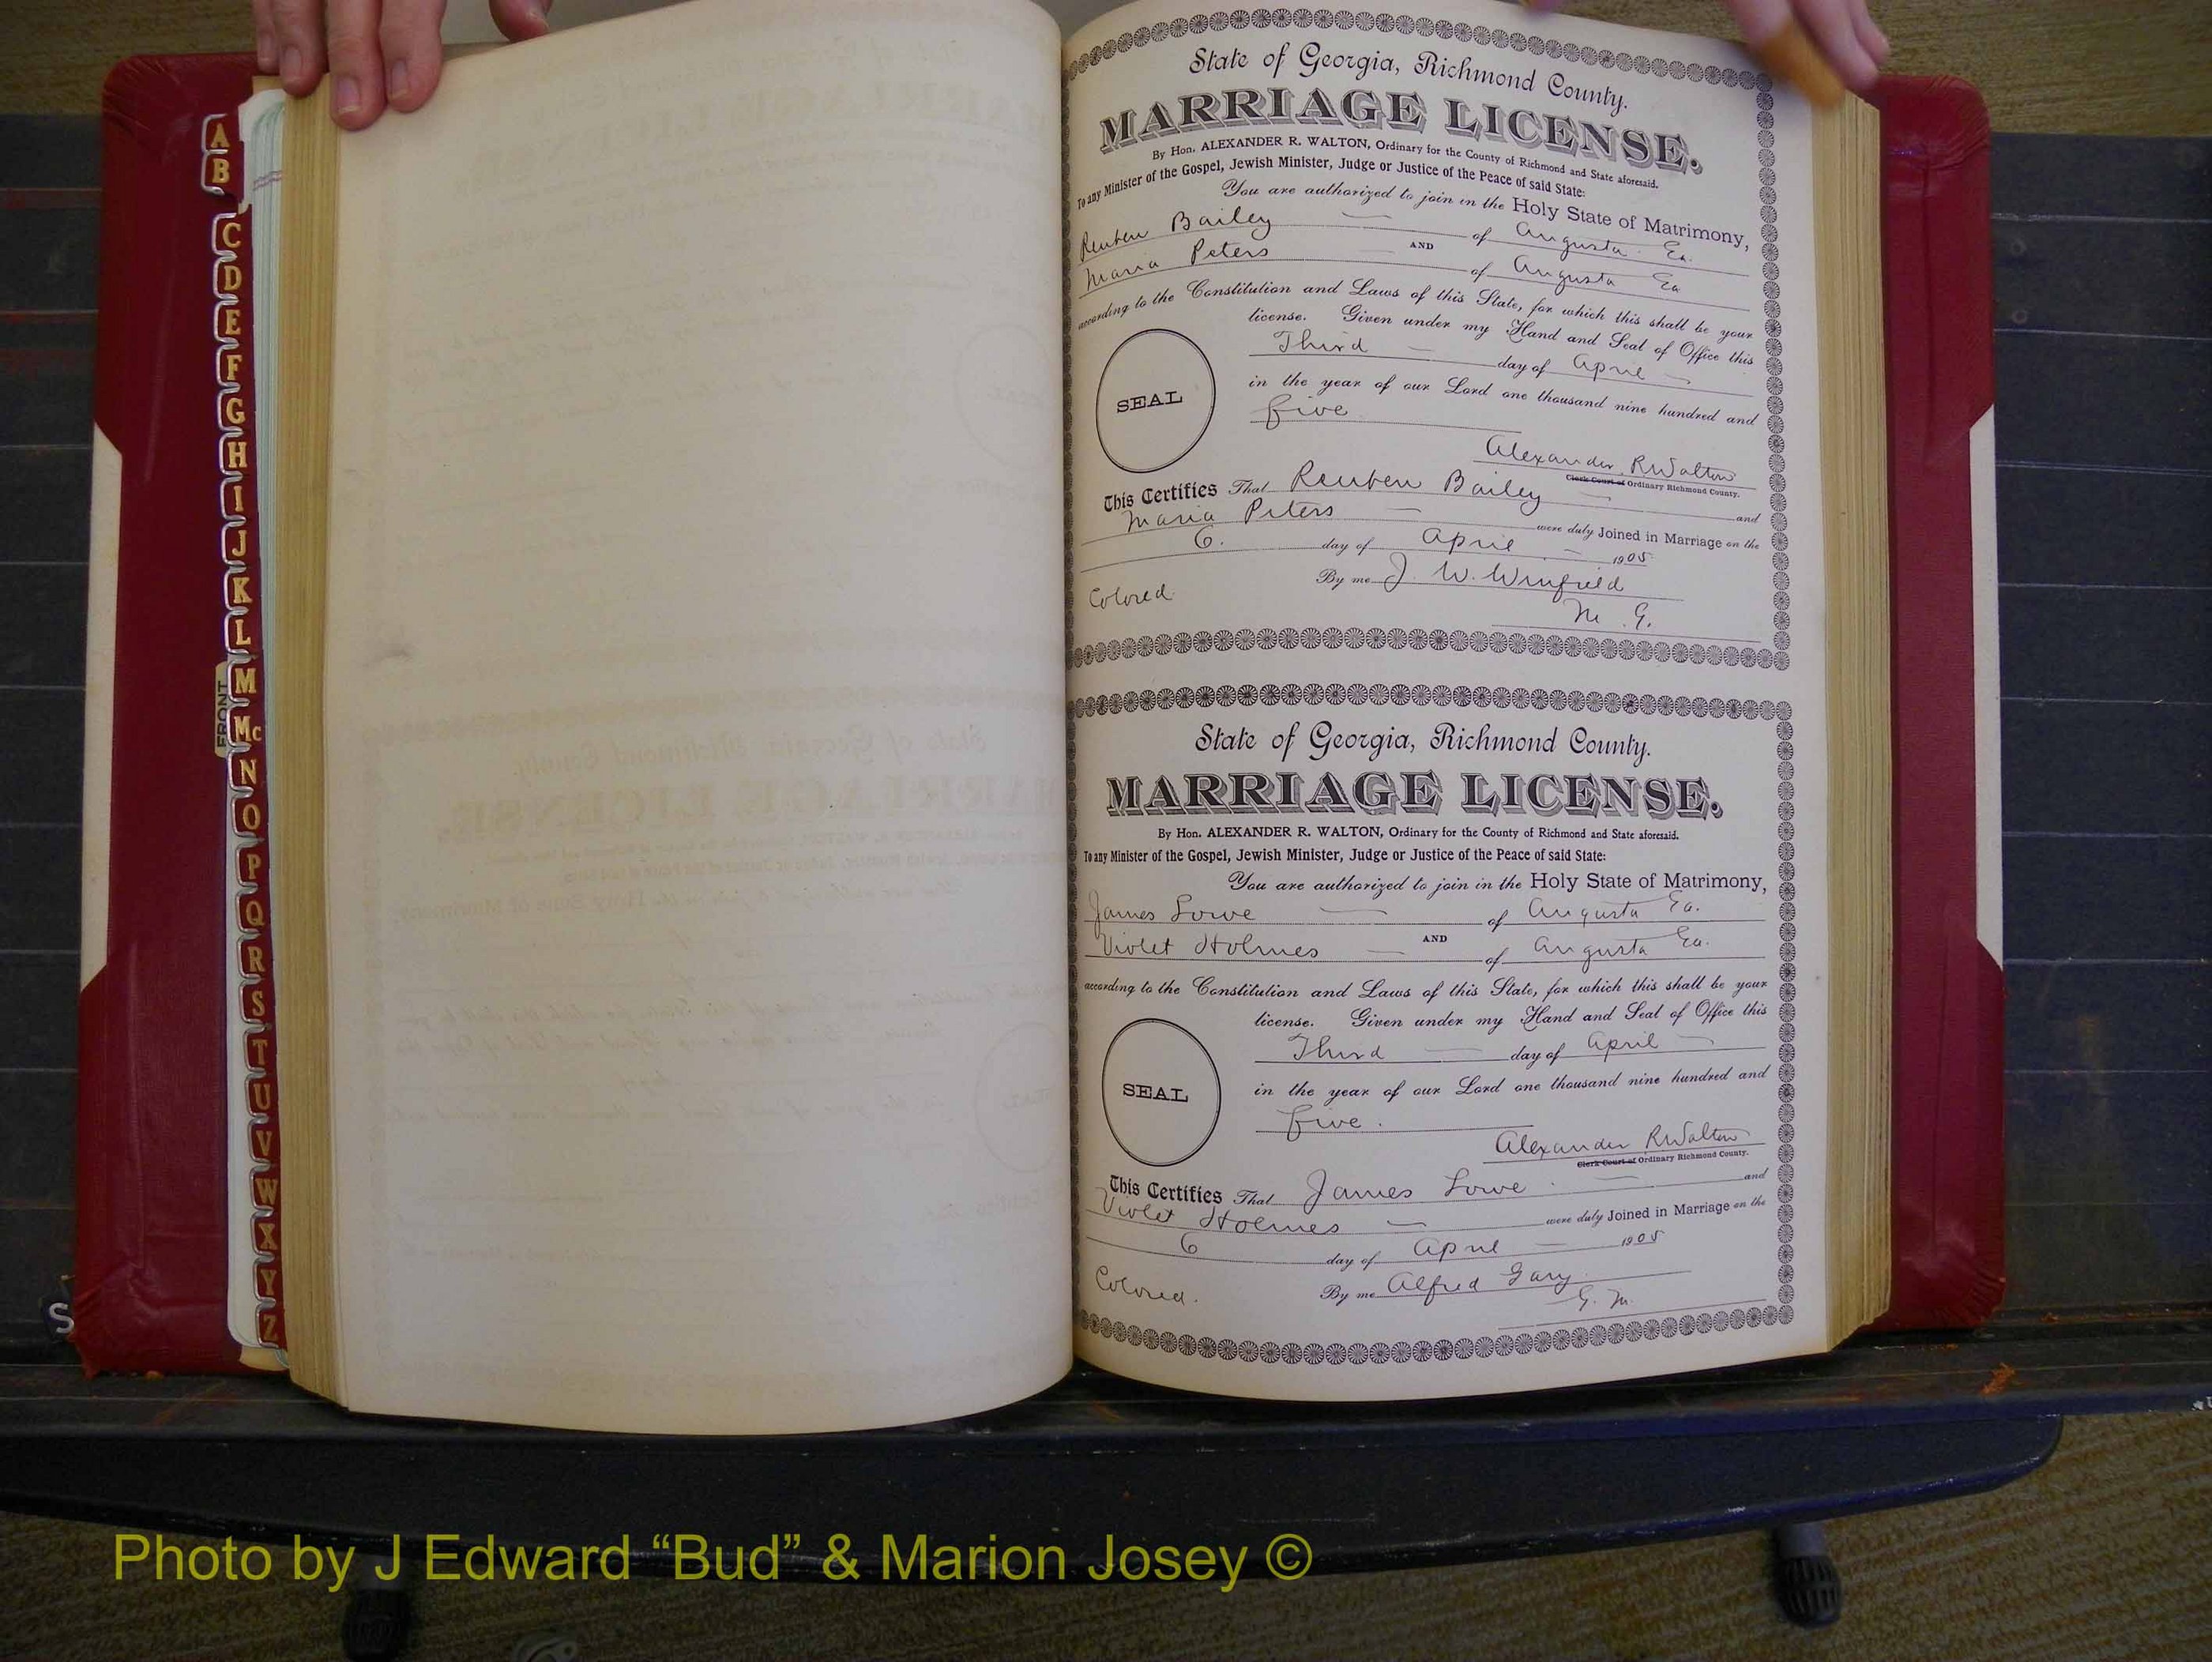 A
B
C
D
E
F
G
H
I
J
K
L
M
Mc
N
O
P
Q
R
S
T
U
V
W
X
Y
Z
FRONT
State of Georgia, Richmond County.
MARRIAGE LICENSE.
By Hon. ALEXANDER R. WALTON, Ordinary for the County of Richmond and State aforesaid.
To any Minister of the Gospel, Jewish Minister, Judge or Justice of the Peace of said State:
You are authorized to join in the Holy State of Matrimony,
Reuben Bailey of Augusta Ga.
AND
Maria Peters of Augusta Ga
according to the Constitution and Laws of this State, for which this shall be your
license. Given under my Hand and Seal of Office this
Third day of April
in the year of our Lord one thousand nine hundred and
five
SEAL
Alexander R Walton
Clerk Court of Ordinary Richmond County.
This Certifies That Reuben Bailey and
Maria Peters were duly Joined in Marriage on the
6. day of April 1905
By me J. W. Winfield
Colored
M. G.
State of Georgia, Richmond County.
MARRIAGE LICENSE.
By Hon. ALEXANDER R. WALTON, Ordinary for the County of Richmond and State aforesaid.
To any Minister of the Gospel, Jewish Minister, Judge or Justice of the Peace of said State:
You are authorized to join in the Holy State of Matrimony,
James Lowe of Augusta Ga.
AND
Violet Holmes of Augusta Ga.
according to the Constitution and Laws of this State, for which this shall be your
license. Given under my Hand and Seal of Office this
Third day of April
in the year of our Lord one thousand nine hundred and
five.
SEAL
Alexander R Walton
Clerk Court of Ordinary Richmond County.
This Certifies That James Lowe and
Violet Holmes were duly Joined in Marriage on the
6 day of April 1905
By me Alfred Gary
Colored.
G. M.
Photo by J Edward “Bud” & Marion Josey ©